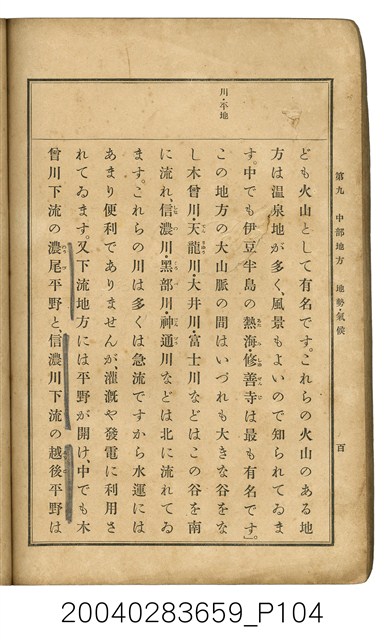 第九 中部地方 地勢・氣候
百
川・平地
ども火山として有名です。これらの火山のある地
方は温泉地が多く、風景もよいので知られてゐま
す。中でも伊豆半島の熱海・修善寺は最も有名です」。
この地方の大山脈の間はいづれも大きな谷をな
し木曾川・天龍川・大井川・富士川などはこの谷を南
に流れ、信濃川・黑部川・神通川などは北に流れてゐ
ます。これらの川は多くは急流ですから水運には
あまり便利でありませんが灌漑や發電に利用さ
れてゐます。又下流地方には平野が開け、中でも木
曾川下流の濃尾平野と、信濃川下流の越後平野は
20040283659_P104